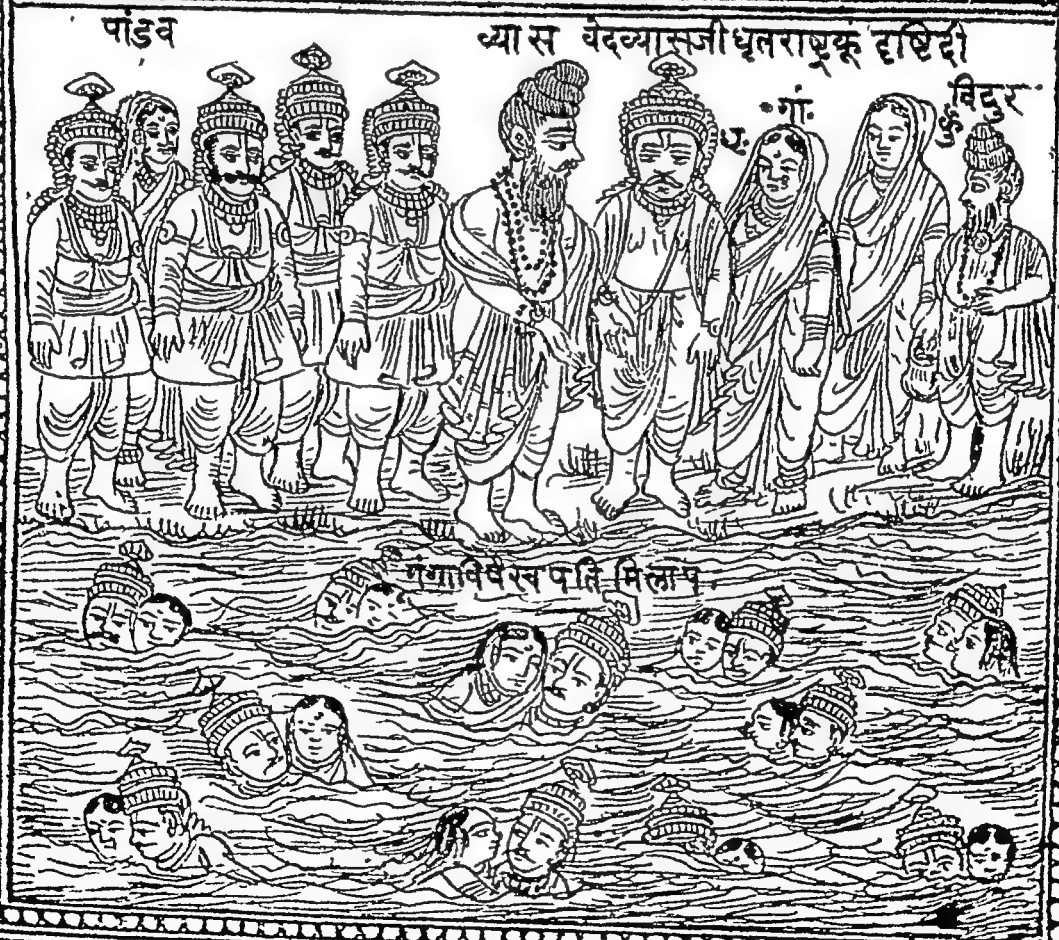 पांडव
व्यास वेदव्यासजी धृतराष्ट्रकूं दृष्टिदी
विदुर
गां.
धृ.
कुं
गंगाविषे स्वपति मिलाप.